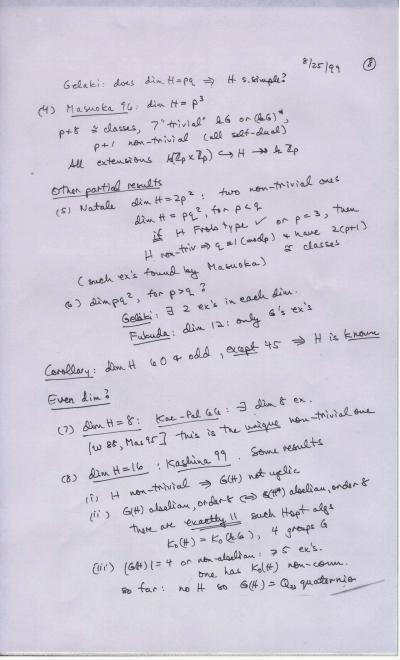 8/25/99 (8)
Gelaki: does dim H = pq ⇒ H s.simple?
(4) Masuoka 96: dim H = p³
p+8 ≅ classes, 7 "trivial" kG or (kG)*,
p+1 non-trivial (all self-dual)
All extensions k(Zp × Zp) ↪ H ↠ k Zp
Other partial results
(5) Natale dim H = 2p²: two non-trivial ones
dim H = pq², for p < q
if H Frob type ✓ or p = 3, then
H non-triv ⇒ q ≡ 1 (mod p) & have 2(p+1)
≅ classes
(such ex's found by Masuoka)
(6) dim pq², for p > q?
Gelaki: ∃ 2 ex's in each dim.
Fukuda: dim 12: only G's ex's
Corollary: dim H < 60 & odd, except 45 ⇒ H is known
Even dim?
(7) dim H = 8: Kac-Pal 66: ∃ dim 8 ex.
[W 88, Mas 95] this is the unique non-trivial one
(8) dim H = 16: Kashina 99. Some results
(i) H non-trivial ⇒ G(H) not cyclic
(ii) G(H) abelian, order 8 ⇔ G(H*) abelian, order 8
there are exactly 11 such Hopf algs
K₀(H) = K₀(kG), 4 groups G
(iii) |G(H)| = 4 or non-abelian: ≥ 5 ex's.
one has K₀(H) non-comm.
so far: no H so G(H) = Q quaternio